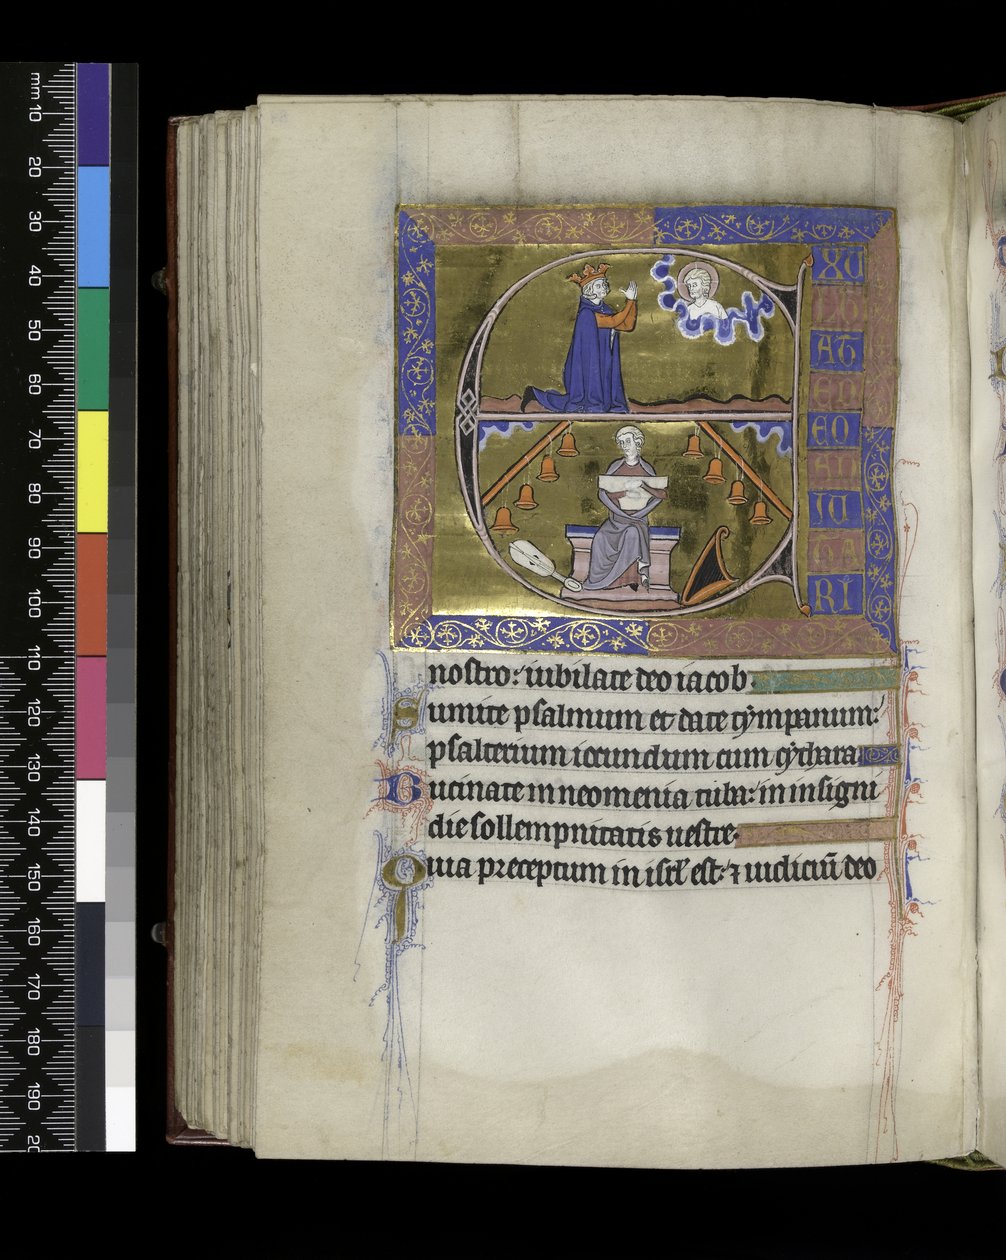 mm 10 20 30 40 50 60 70 80 90 100 110 120 130 140 150 160 170 180 190
E
XU
LT
AT
ED
EO
AD
IU
RI
nostro: iubilate deo iacob.
Sumite psalmum et date tympanum:
psalterium iocundum cum cythara
Bucinate in neomenia tuba: in insigni
die sollempnitatis uestre.
Quia preceptum in isrł est: ⁊ iudiciū deo